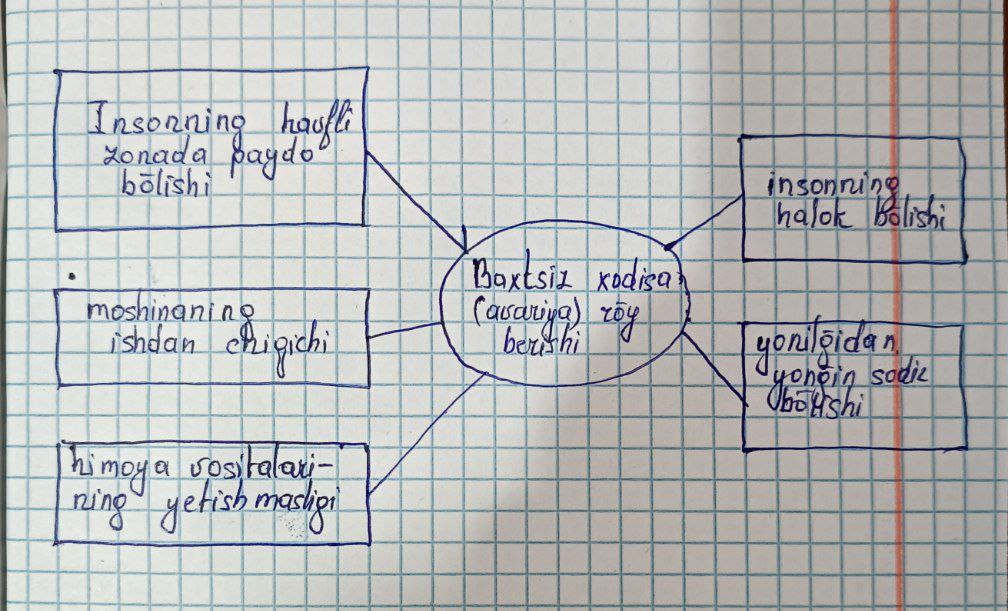 Insonning havfli
zonada paydo
bōlishi
moshinaning
ishdan chigichi
himoya vositalari-
ning yetishmasligi
Baxtsiz xodisa
(avariya) rōy
berishi
insonning
halok bōlishi
yonilḡidan
yonḡin sodir
bōlishi